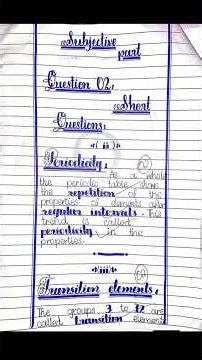 Subjective
part
Question 02,
Short
Questions,
(ii)
Periodicity,
As a whole
the periodic table show
the repetition of the
properties of elements after
regular intervals. This
trend is called
periodicity in the
properties.
(iii)
Transition elements,
The groups 3 to 12 are
called transition element